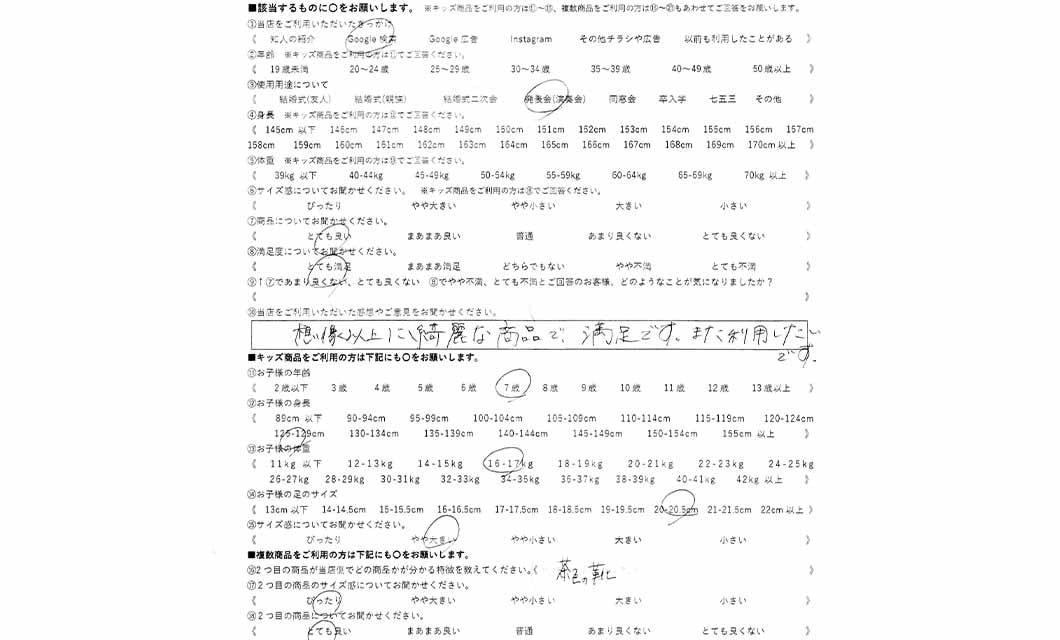 ■該当するものに〇をお願いします。 ※キッズ商品をご利用の方は⑪～⑮、複数商品をご利用の方は⑯～㉑もあわせてご回答をお願いします。
①当店をご利用いただいたきっかけ
《 知人の紹介 Google 検索 Google 広告 Instagram その他チラシや広告 以前も利用したことがある 》
②年齢 ※キッズ商品をご利用の方は⑪でご回答ください。
《 19歳未満 20～24歳 25～29歳 30～34歳 35～39歳 40～49歳 50歳以上 》
③使用用途について
《 結婚式(友人) 結婚式(親族) 結婚式二次会 発表会(演奏会) 同窓会 卒入学 七五三 その他 》
④身長 ※キッズ商品をご利用の方は⑫でご回答ください。
《 145cm 以下 146cm 147cm 148cm 149cm 150cm 151cm 152cm 153cm 154cm 155cm 156cm 157cm
158cm 159cm 160cm 161cm 162cm 163cm 164cm 165cm 166cm 167cm 168cm 169cm 170cm 以上 》
⑤体重 ※キッズ商品をご利用の方は⑬でご回答ください。
《 39kg 以下 40-44kg 45-49kg 50-54kg 55-59kg 60-64kg 65-69kg 70kg 以上 》
⑥サイズ感についてお聞かせください。 ※キッズ商品をご利用の方は⑮でご回答ください。
《 ぴったり やや大きい やや小さい 大きい 小さい 》
⑦商品についてお聞かせください。
《 とても良い まあまあ良い 普通 あまり良くない とても良くない 》
⑧満足度についてお聞かせください。
《 とても満足 まあまあ満足 どちらでもない やや不満 とても不満 》
⑨↑⑦であまり良くない、とても良くない ⑧でやや不満、とても不満とご回答のお客様、どのようなことが気になりましたか？
《 》
⑩当店をご利用いただいた感想やご意見をお聞かせください。
想像以上に綺麗な商品で、満足です。また利用したい
です。
■キッズ商品をご利用の方は下記にも〇をお願いします。
⑪お子様の年齢
《 2歳以下 3歳 4歳 5歳 6歳 7歳 8歳 9歳 10歳 11歳 12歳 13歳以上 》
⑫お子様の身長
《 89cm 以下 90-94cm 95-99cm 100-104cm 105-109cm 110-114cm 115-119cm 120-124cm
125-129cm 130-134cm 135-139cm 140-144cm 145-149cm 150-154cm 155cm 以上 》
⑬お子様の体重
《 11kg 以下 12-13kg 14-15kg 16-17kg 18-19kg 20-21kg 22-23kg 24-25kg
26-27kg 28-29kg 30-31kg 32-33kg 34-35kg 36-37kg 38-39kg 40-41kg 42kg 以上 》
⑭お子様の足のサイズ
《 13cm 以下 14-14.5cm 15-15.5cm 16-16.5cm 17-17.5cm 18-18.5cm 19-19.5cm 20-20.5cm 21-21.5cm 22cm 以上 》
⑮サイズ感についてお聞かせください。
《 ぴったり やや大きい やや小さい 大きい 小さい 》
■複数商品をご利用の方は下記にも〇をお願いします。
⑯2つ目の商品が当店側でどの商品かが分かる特徴を教えてください。《 茶色の靴 》
⑰2つ目の商品のサイズ感についてお聞かせください。
《 ぴったり やや大きい やや小さい 大きい 小さい 》
⑱2つ目の商品についてお聞かせください。
《 とても良い まあまあ良い 普通 あまり良くない とても良くない 》